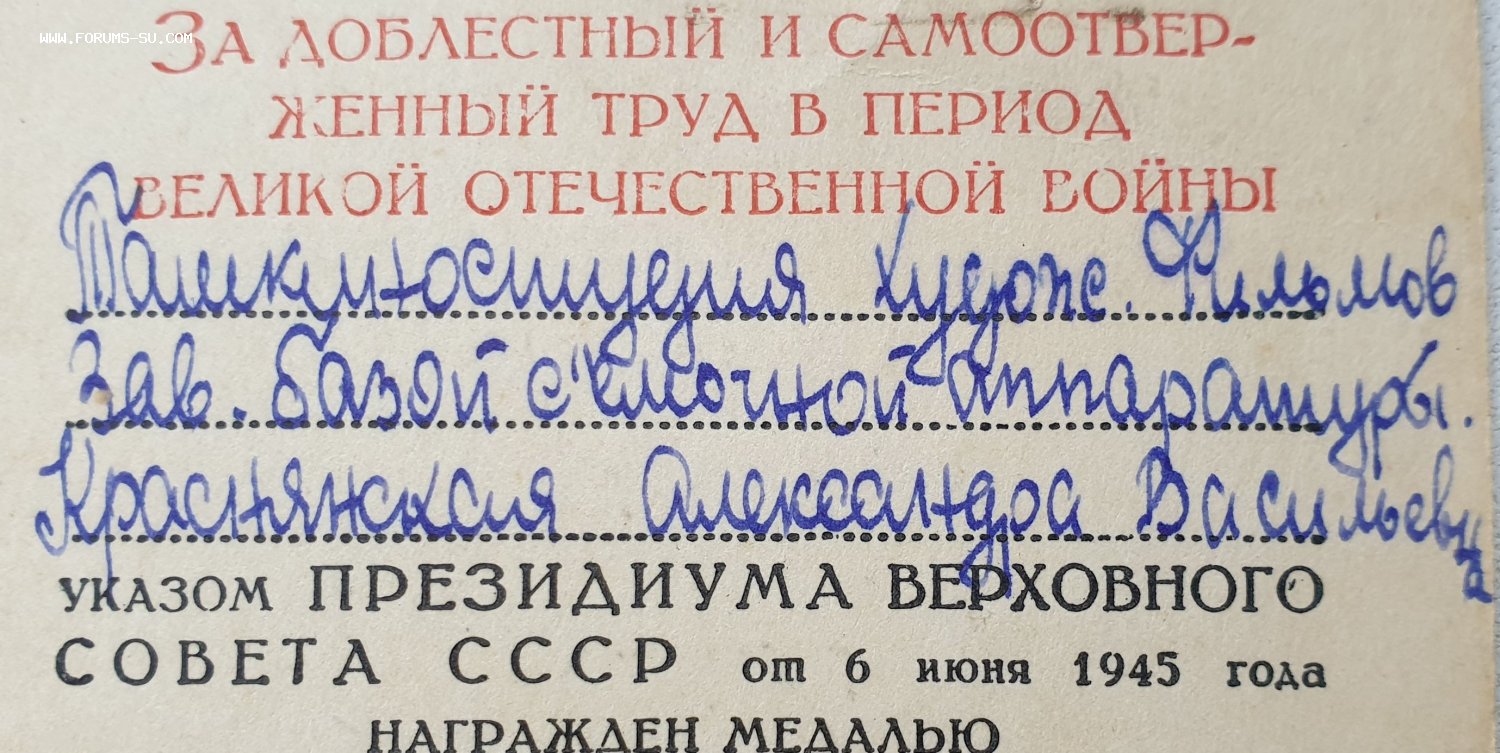 WWW.FORUMS-SU.COM
ЗА ДОБЛЕСТНЫЙ И САМООТВЕР-
ЖЕННЫЙ ТРУД В ПЕРИОД
ВЕЛИКОЙ ОТЕЧЕСТВЕННОЙ ВОЙНЫ
Ташкиностудия Худож. Фильмов
Зав. базой с'емочной аппаратуры.
Краснянская Александра Васильевна
УКАЗОМ ПРЕЗИДИУМА ВЕРХОВНОГО
СОВЕТА СССР от 6 июня 1945 года
НАГРАЖДЕН МЕДАЛЬЮ